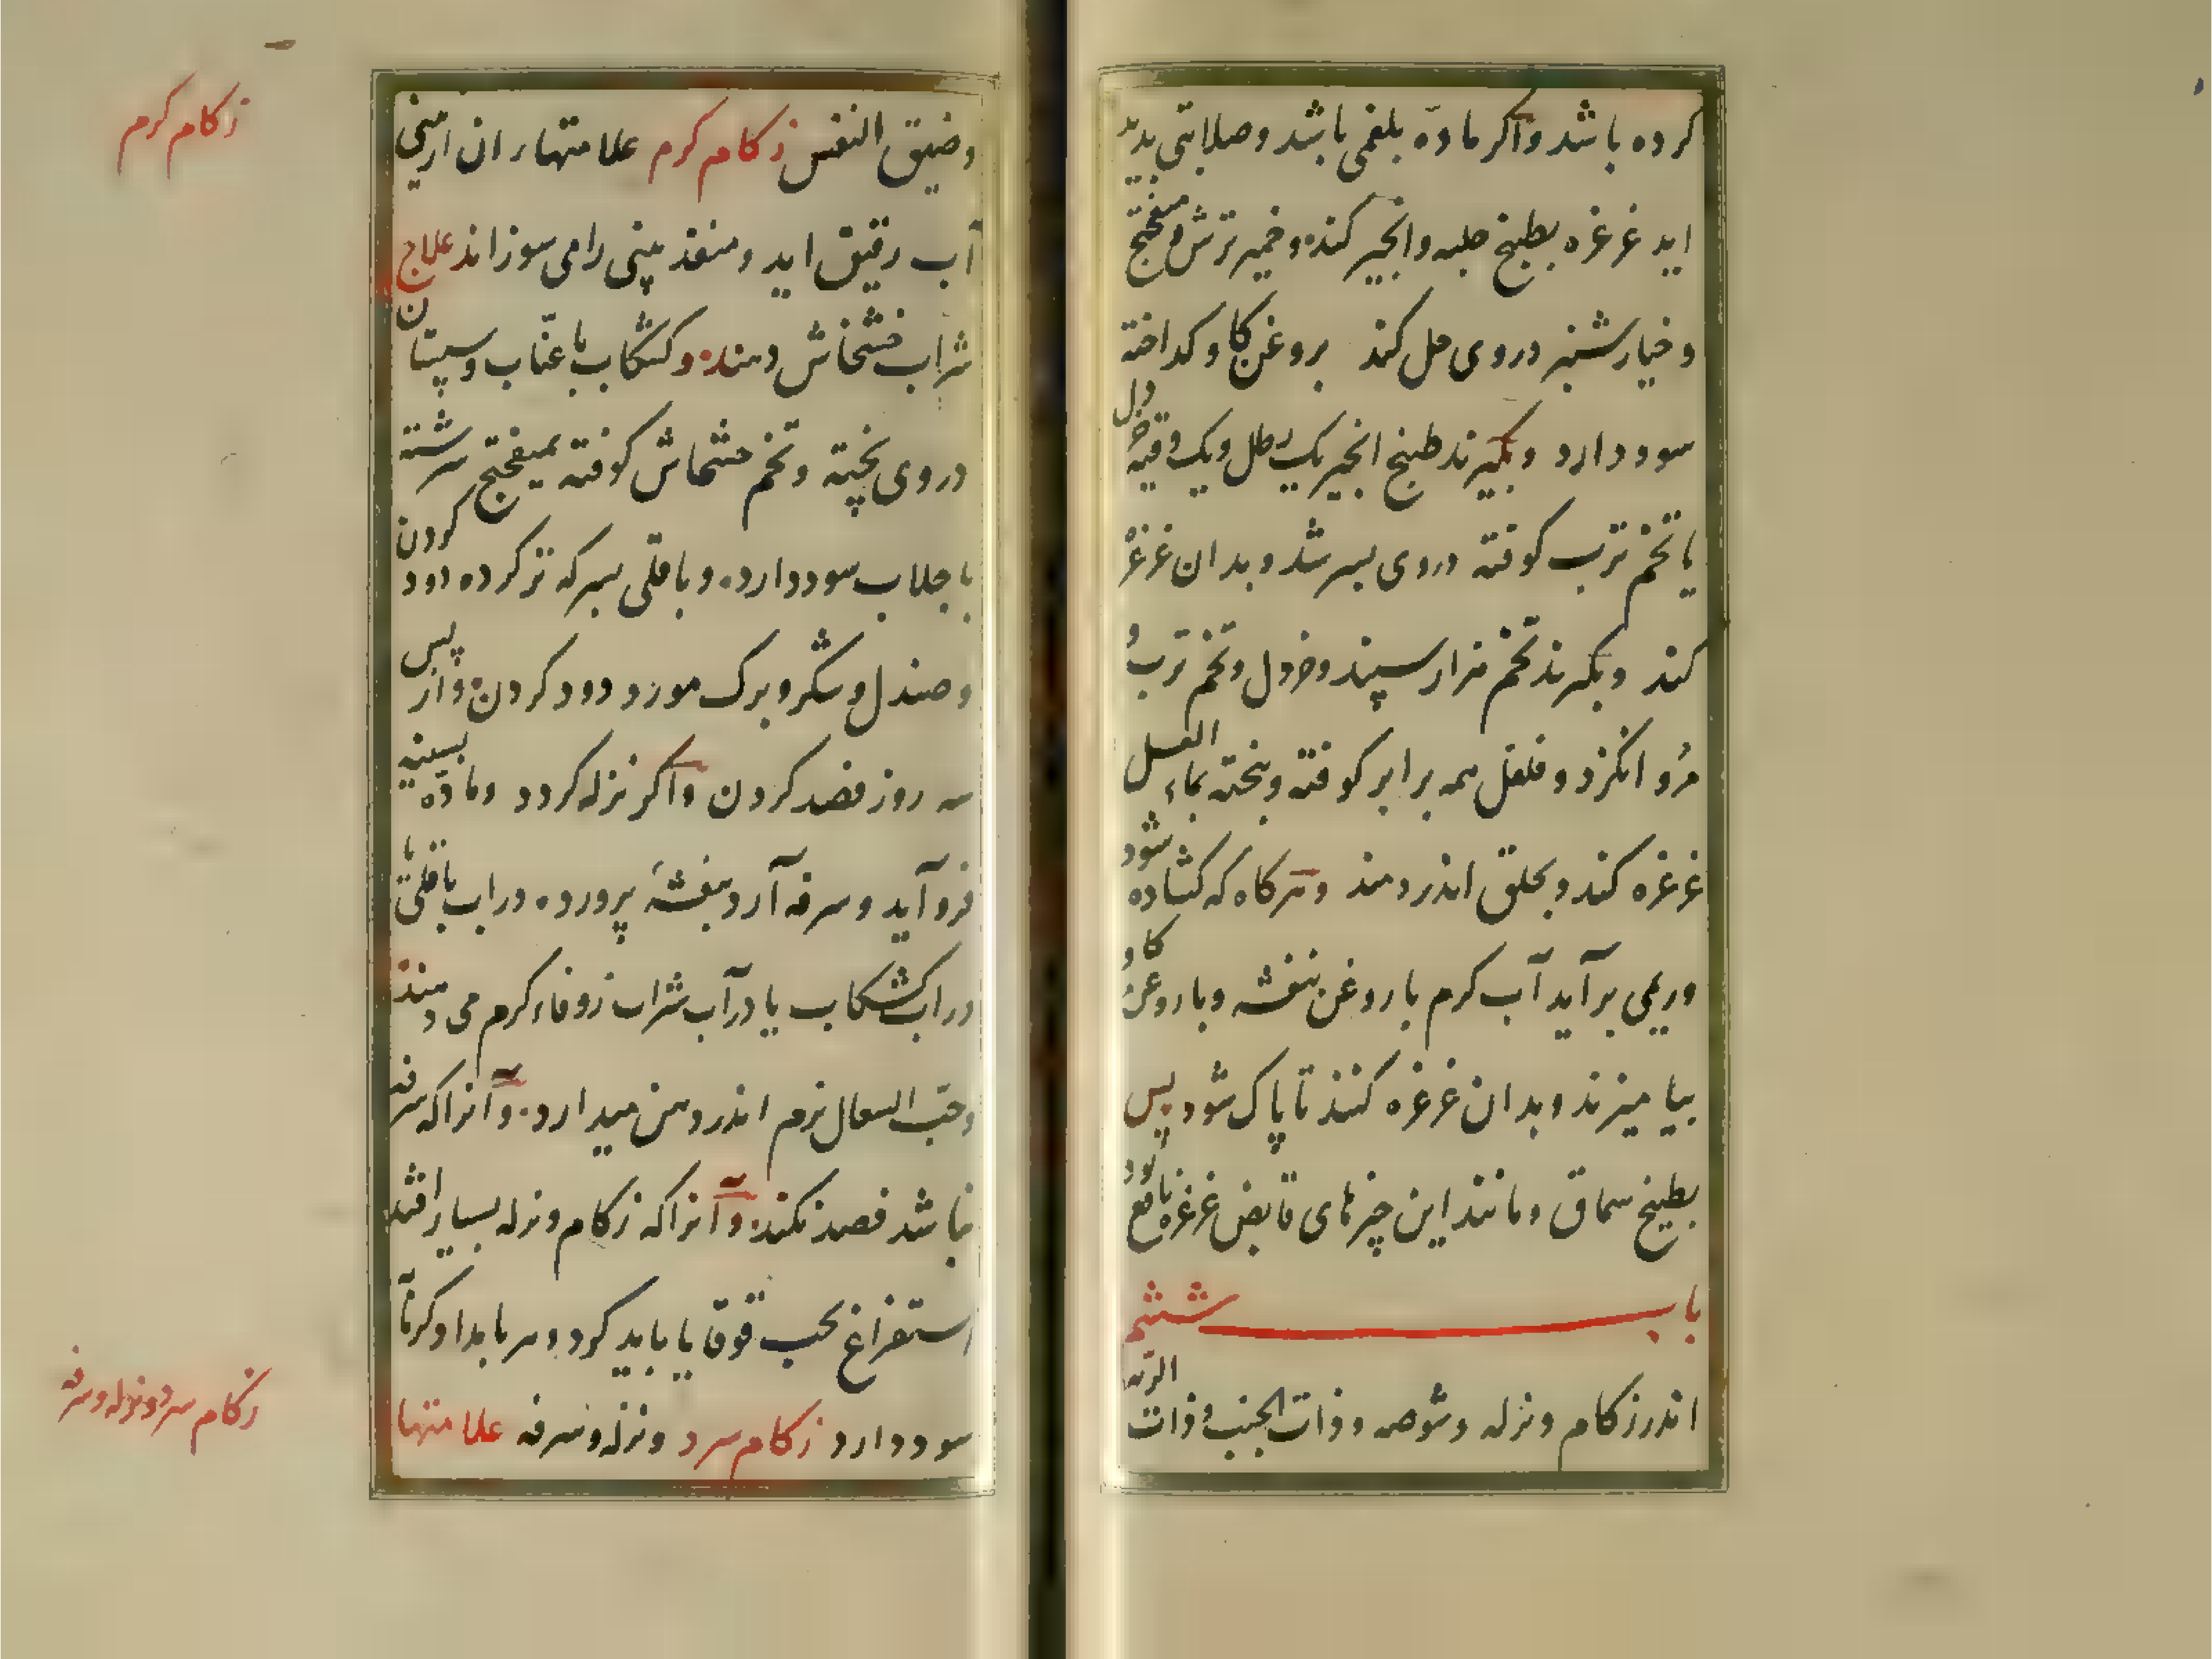 کرده باشد واکر مادّه بلغمی باشد وصلابتی بدید
اید غرغره بطبیخ حلبه وانجیر کند وخمیر ترش ومیفختج
وخیارشنبر دروی حل کند بروغن کاو کداخته
سود دارد وبکیرند طبیخ انجیر یک رطل ویک وقیه خردل
یا تخم ترب کوفته دروی بسرشد وبدان غرغره
کند وبکیرند تخم هزار سپند وخردل وتخم ترب و
مرو انکزد وفلفل همه برابر کوفته وبخته بماء العسل
غرغره کند وبحلق اندر دمند وهرکاه که کشاده شود
وریمی برآید آب کرم با روغن بنفشه وبا روغن کاو
بیامیزند وبدان غرغره کنند تا پاک شود پس
بطبیخ سماق ومانند این چیزهای قابض غرغره نافع بود
باب ششم
اندر زکام ونزله وشوصه وذات الجنب وذات الریه
وضیق النفس زکام کرم علامتهاء ان ازبینی
آب رقیق اید ومنفذ بینی را می سوزاند علاج
شراب خشخاش دهند وکشکاب با عنّاب وسپستان
دروی پخته وتخم خشخاش کوفته بمیفختج سرشته
با جلاب سود دارد وباقلی بسرکه تر کرده دود کردن
وصندل وشکر وبرک مورد دود کردن واز پس
سه روز فصد کردن واکر نزله کردد ومادّه بسینه
فرو آید وسرفه آرد بنفشهٔ پرورده در اب باقلی یا
در اب کشکاب یا در آب شراب زوفاء کرم می دهند
وحبّ السعال نرم اندر دهن میدارد وآنرا که سرفه
نباشد فصد نکند وآنرا که زکام ونزله بسیار افتد
استفراغ بحب قوقایا باید کرد وهر بامداد وکرمآبه
سود دارد زکام سرد ونزله وسرفه علامتها
زکام کرم
زکام سرد ونزله وسرفه